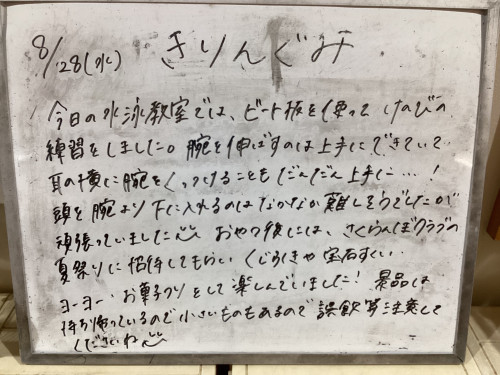 8/28(水) きりんぐみ
今日の水泳教室では、ビート板を使って けのびの
練習をしました。腕を伸ばすのは上手にできていて
耳の横に腕をくっつけることもだんだん上手に…!
頭を腕より下に入れるのはなかなか難しそうでしたが
頑張っていました おやつ後には、さくらんぼクラブの
夏祭りに招待してもらい くじびきや宝石すくい
ヨーヨー・お菓子つりをして楽しんでいました! 景品は
持ち帰っているので小さいものもあるので 誤飲等注意して
くださいね